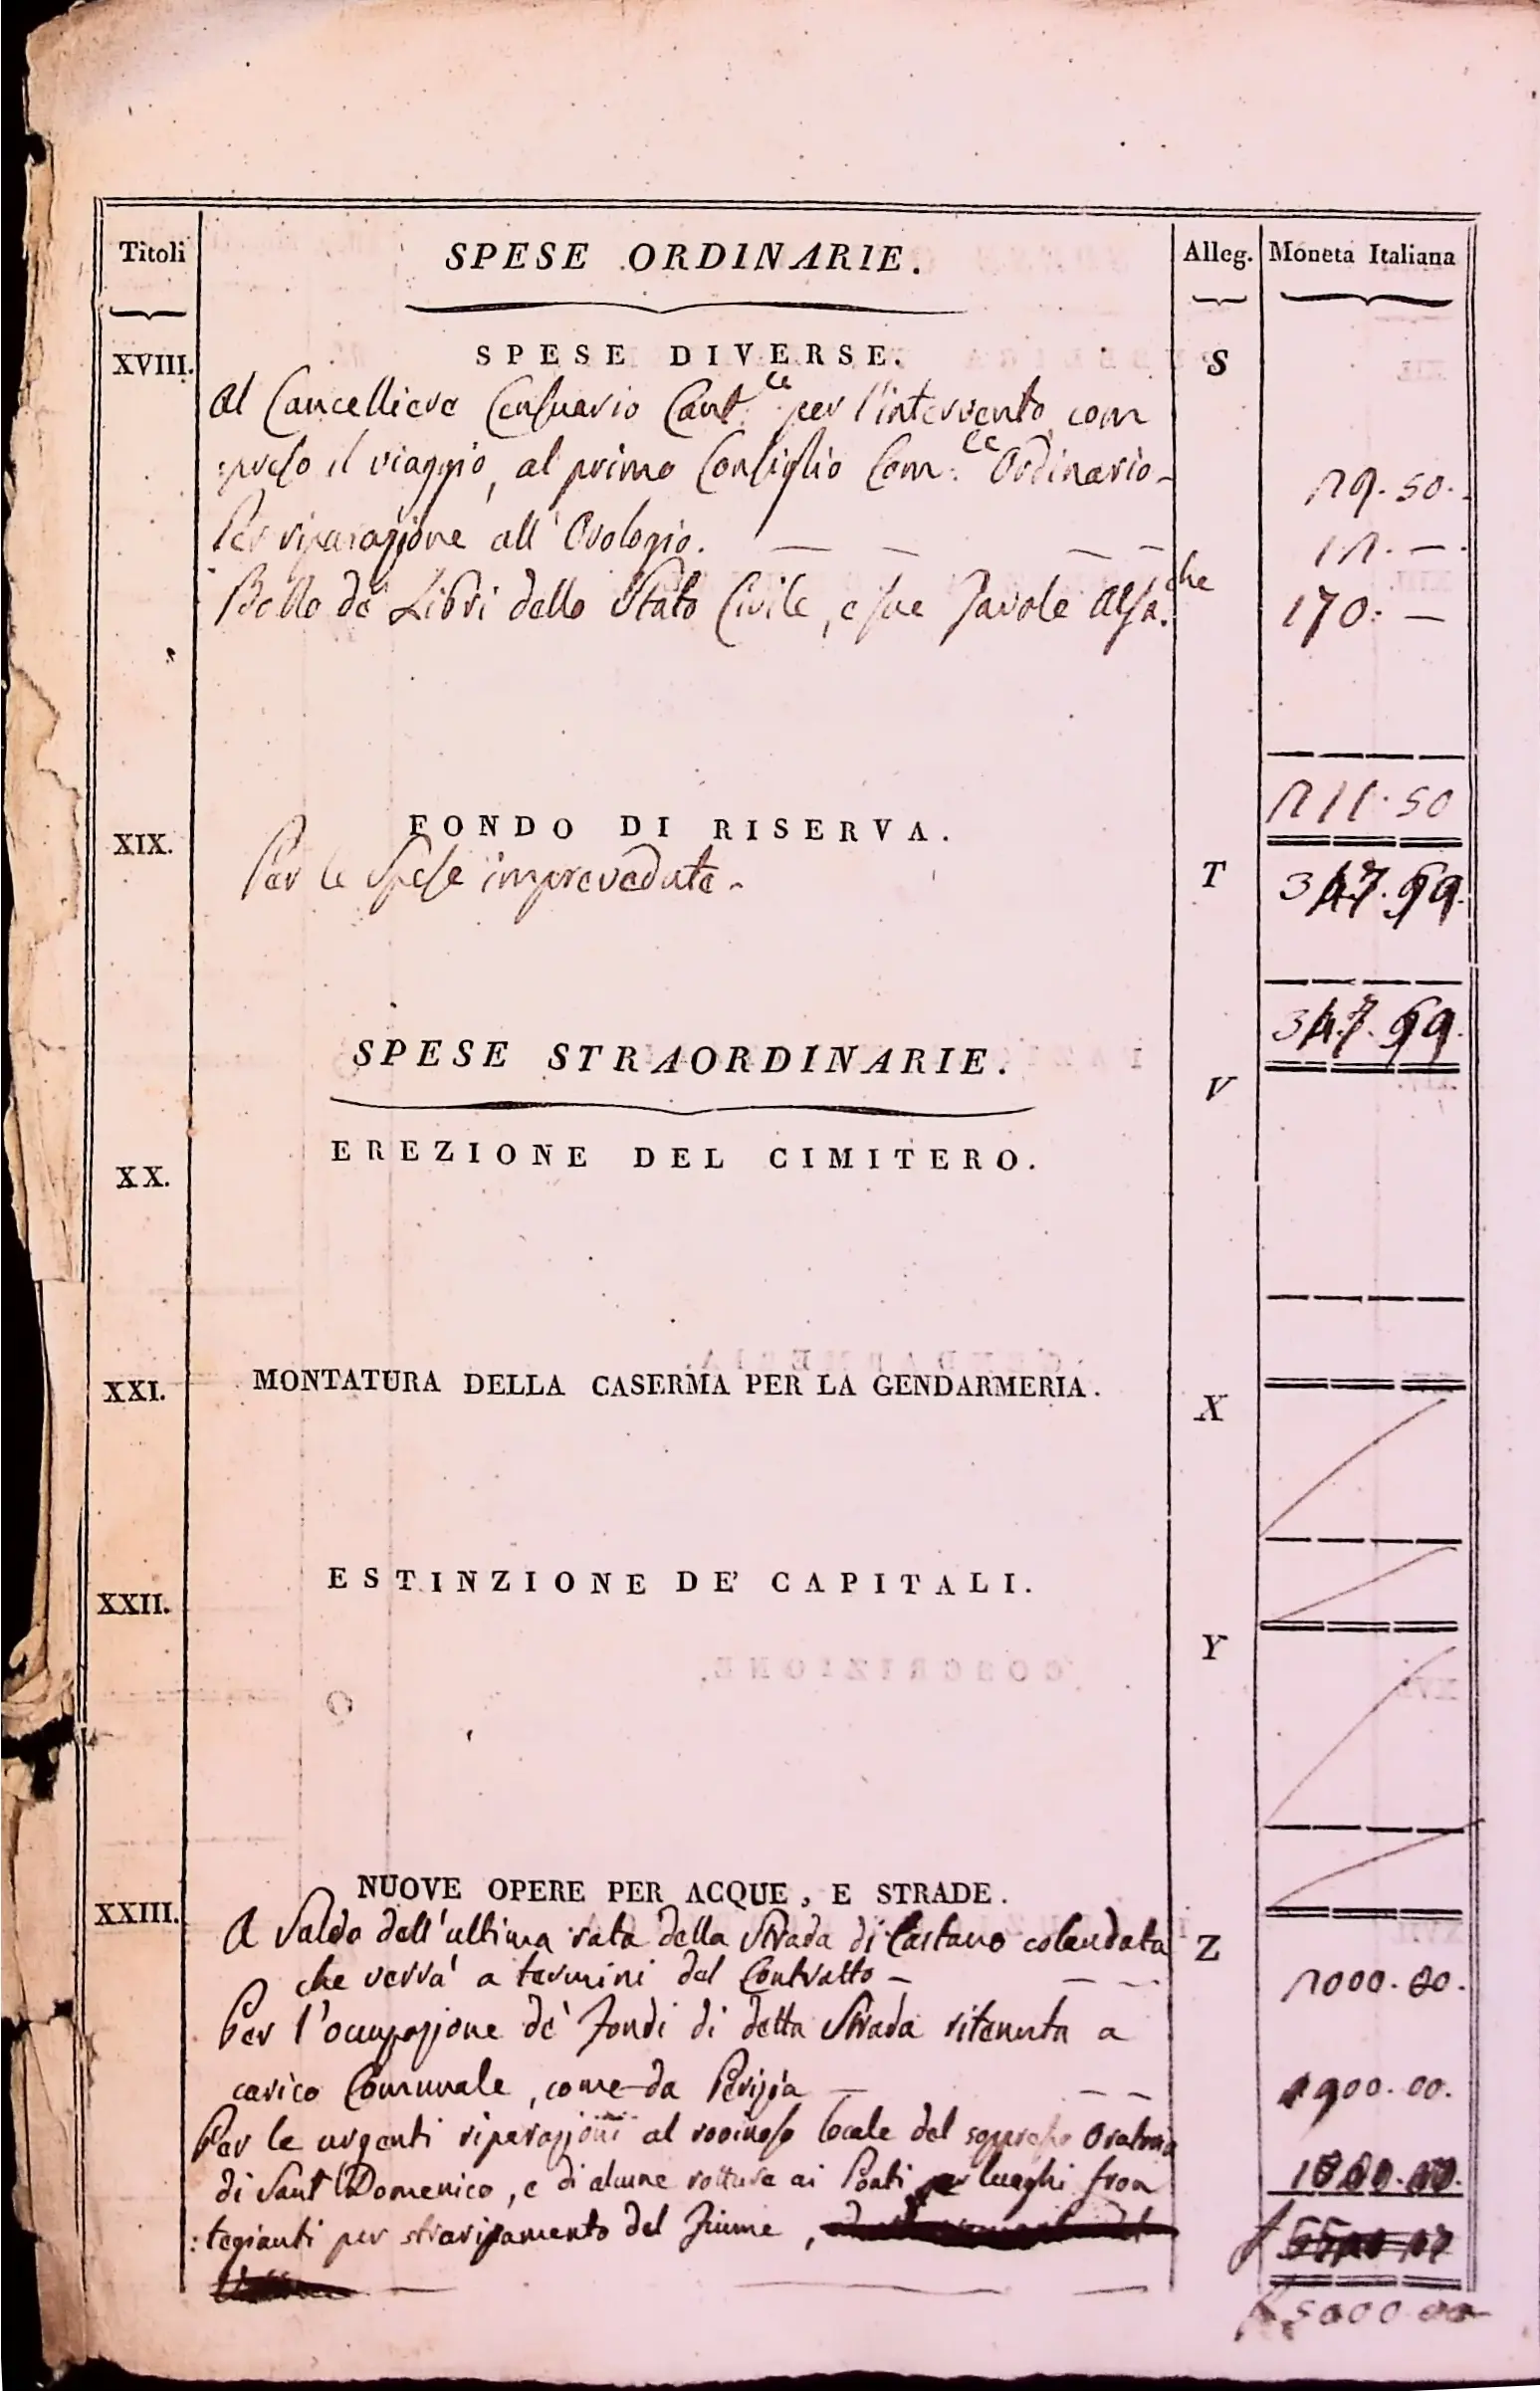 Titoli SPESE ORDINARIE. Alleg. Moneta Italiana
XVIII. SPESE DIVERSE. S
Al Cancelliere Censuario Cant.le per l'intervento com
:preso il viaggio, al primo Consiglio Com:le Ordinario - 29. 50.
Per riparazione all' Orologio. — — — — 12. —.
Bollo de' Libri dello Stato Civile, e sue Tavole Alfa.che 170: —
211. 50
XIX. FONDO DI RISERVA.
Per le Spese imprevedute. T 347. 99.
347. 99.
SPESE STRAORDINARIE. V
XX. EREZIONE DEL CIMITERO.
XXI. MONTATURA DELLA CASERMA PER LA GENDARMERIA. X
XXII. ESTINZIONE DE' CAPITALI.
Y
XXIII. NUOVE OPERE PER ACQUE, E STRADE.
A Saldo dell'ultima rata della Strada di Castano colaudata Z
che verrà a termini del Contratto - — — 2000. 00.
Per l'occupazione de' Fondi di detta Strada ritenuta a
carico Comunale, come da Perizia — — — 900. 00.
Per le urgenti riparazioni al rovinoso locale del soppresso Oratorio
di Sant Domenico, e di alcune rotture ai Ponti luoghi fron
:tegianti per straripamento del Fiume,
5000 00